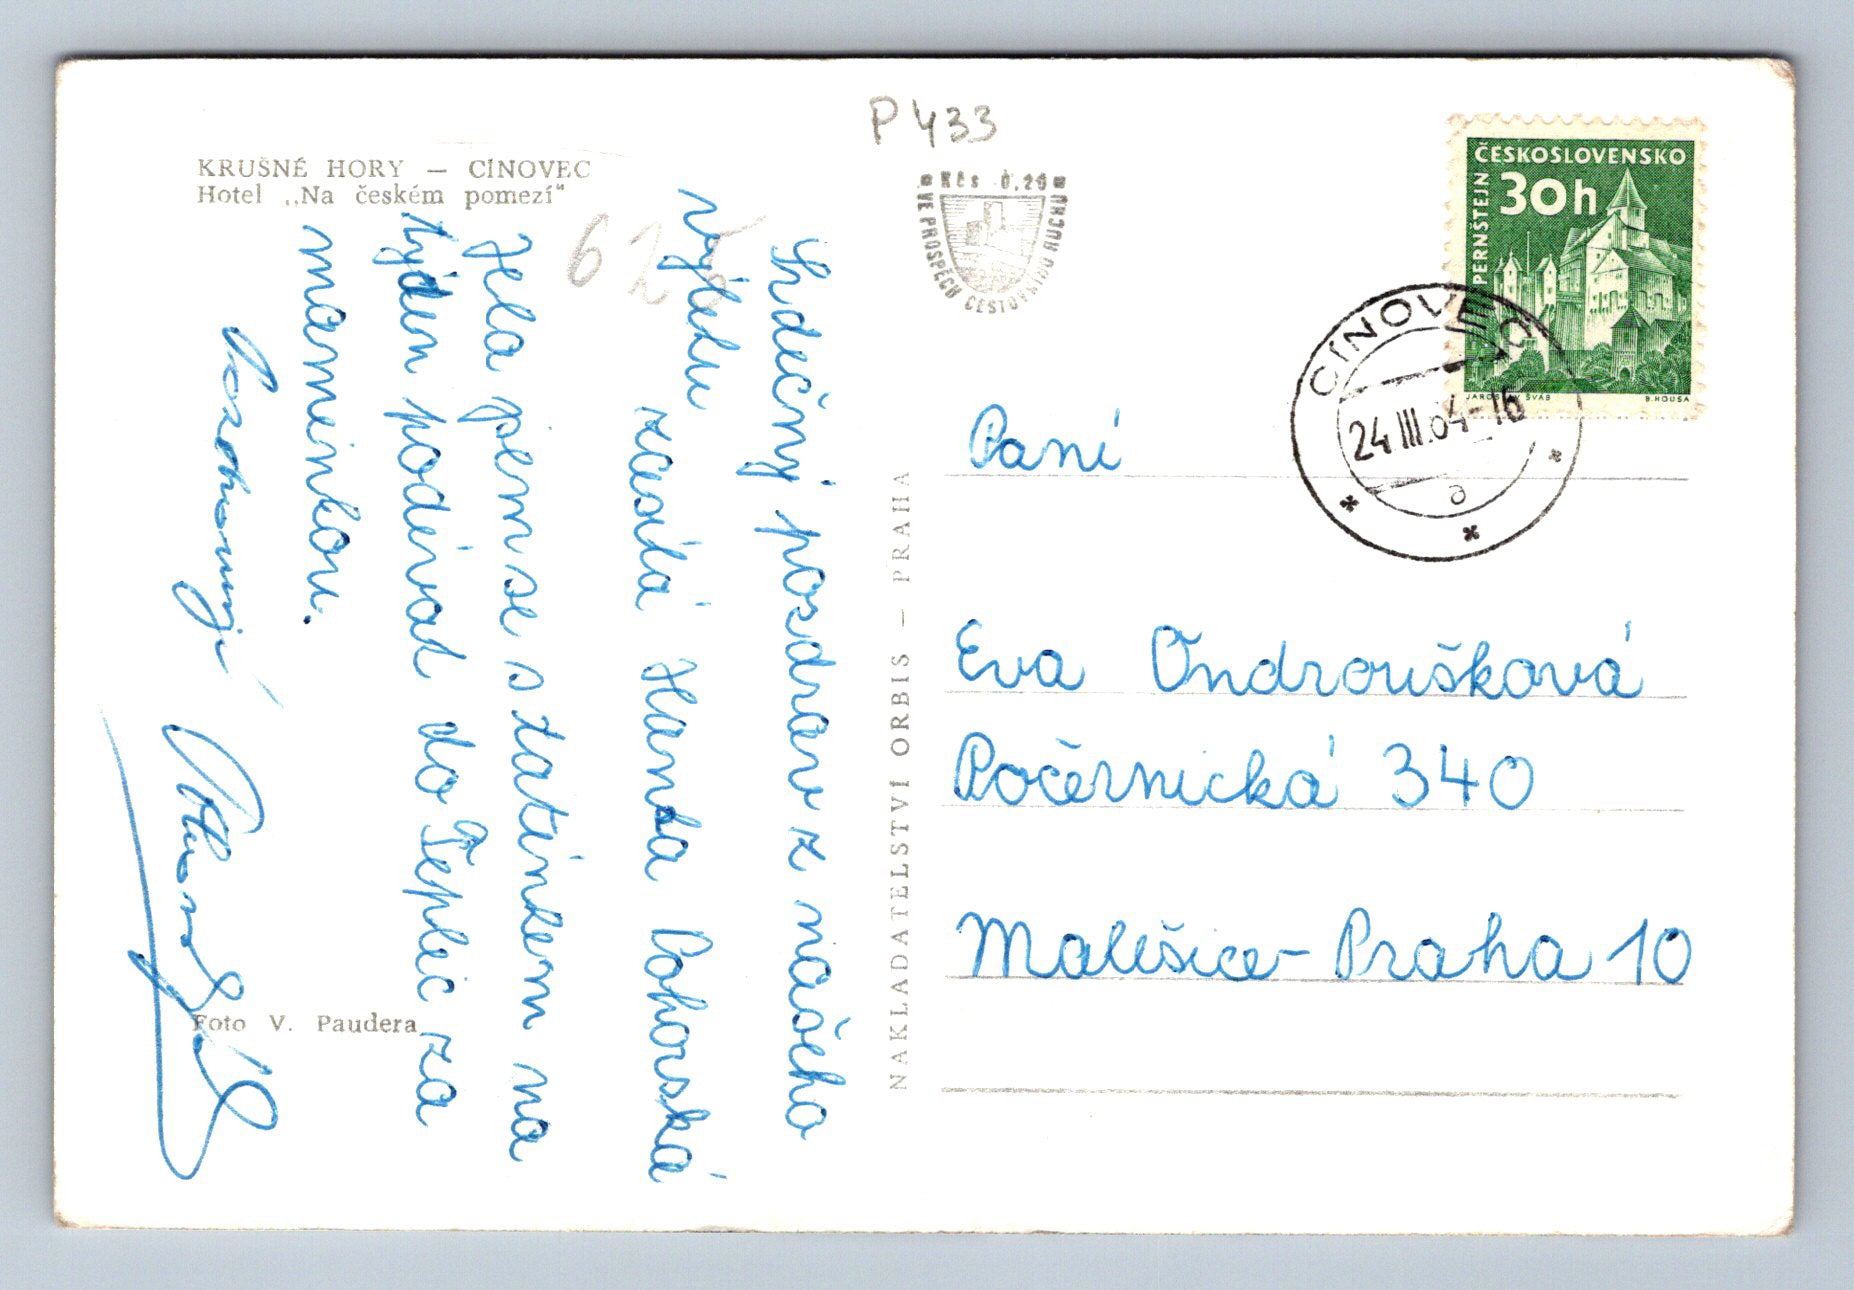 KRUŠNÉ HORY — CÍNOVEC
Hotel „Na českém pomezí“
P 433
Kčs 0,20
VE PROSPĚCH CESTOVNÍHO RUCHU
ČESKOSLOVENSKO
30h
PERNŠTEJN
JAROSLAV ŠVÁB
B. HOUSA
CÍNOVEC
24.III.64-16
a
Srdečný pozdrav z našeho
výletu zasílá Hanka Pohorská
Jela jsem se s tatínkem na
týden podívat do Teplic za
maminkou.
Foto V. Paudera
NAKLADATELSTVÍ ORBIS — PRAHA
Paní
Eva Ondroušková
Počernická 340
Malešice - Praha 10